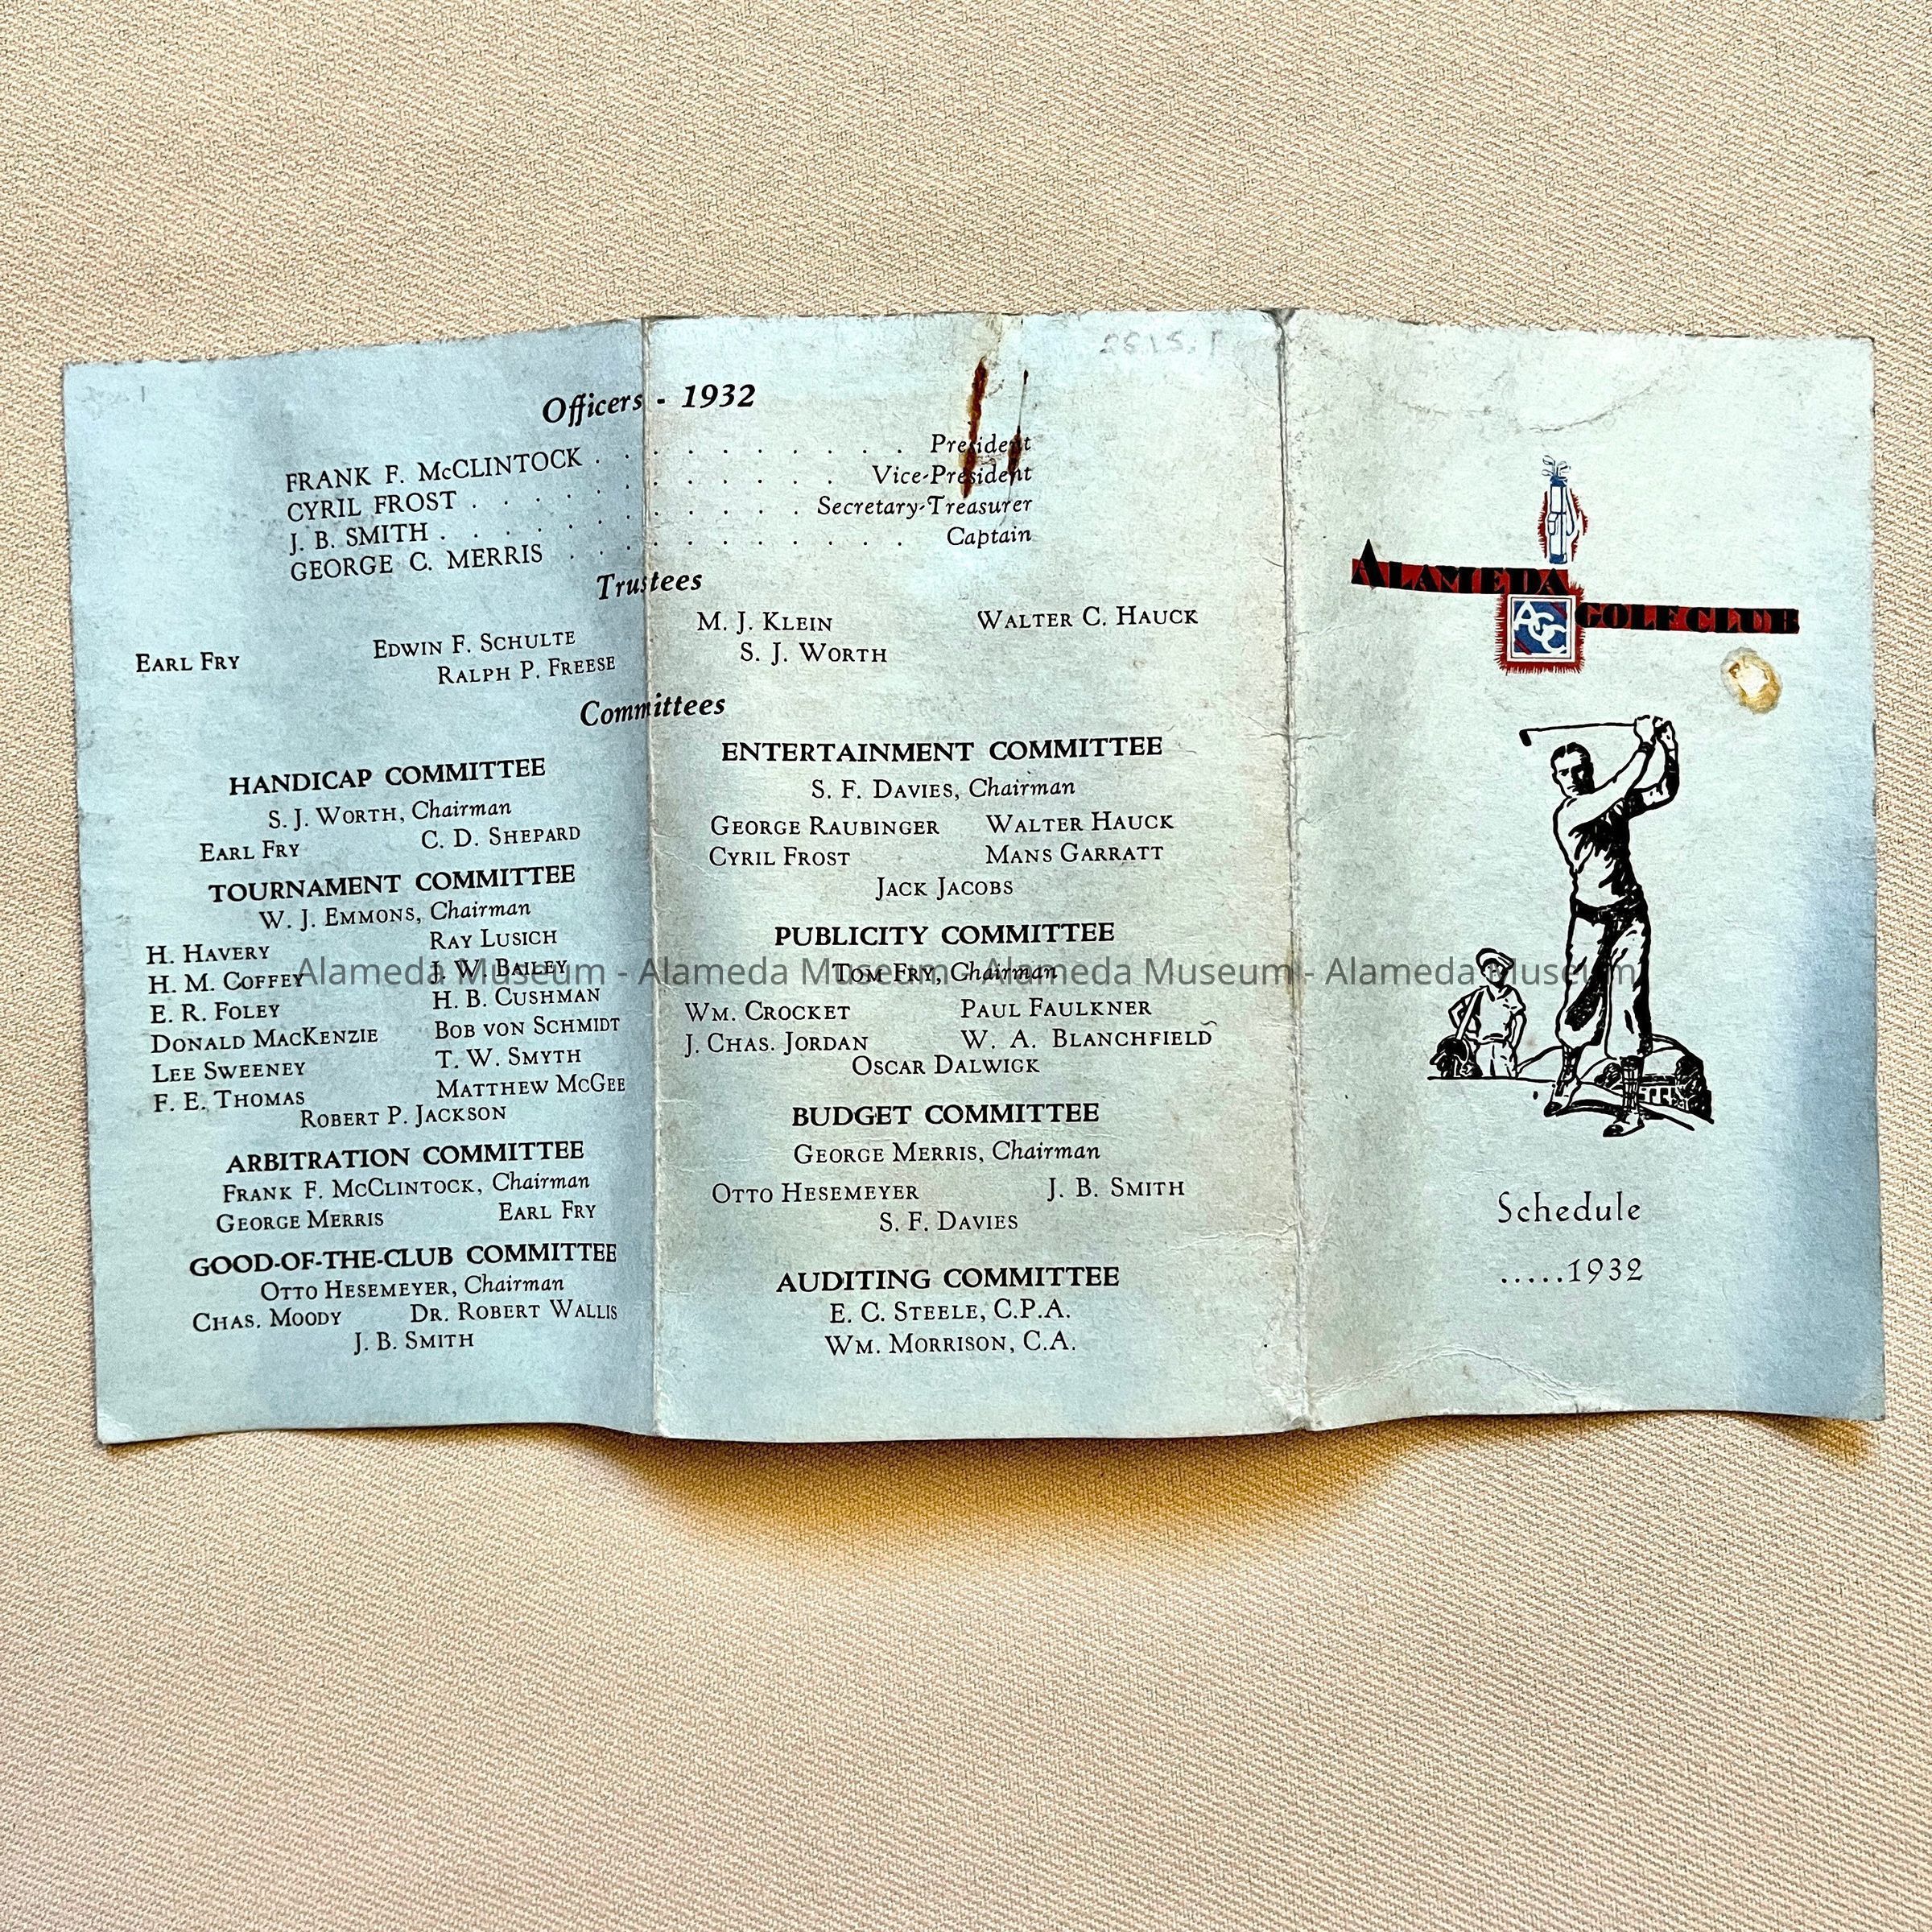 Officers - 1932
FRANK F. McCLINTOCK . . . . . . . . . . President
CYRIL FROST . . . . . . . . . . . . Vice-President
J. B. SMITH . . . . . . . . . . . Secretary-Treasurer
GEORGE C. MERRIS . . . . . . . . . . . Captain
Trustees
EARL FRY EDWIN F. SCHULTE M. J. KLEIN WALTER C. HAUCK
RALPH P. FREESE S. J. WORTH
Committees
HANDICAP COMMITTEE
S. J. WORTH, Chairman
EARL FRY C. D. SHEPARD
TOURNAMENT COMMITTEE
W. J. EMMONS, Chairman
H. HAVERY RAY LUSICH
H. M. COFFEY J. W. BAILEY
E. R. FOLEY H. B. CUSHMAN
DONALD MACKENZIE BOB VON SCHMIDT
LEE SWEENEY T. W. SMYTH
F. E. THOMAS MATTHEW MCGEE
ROBERT P. JACKSON
ARBITRATION COMMITTEE
FRANK F. MCCLINTOCK, Chairman
GEORGE MERRIS EARL FRY
GOOD-OF-THE-CLUB COMMITTEE
OTTO HESEMEYER, Chairman
CHAS. MOODY DR. ROBERT WALLIS
J. B. SMITH
ENTERTAINMENT COMMITTEE
S. F. DAVIES, Chairman
GEORGE RAUBINGER WALTER HAUCK
CYRIL FROST MANS GARRATT
JACK JACOBS
PUBLICITY COMMITTEE
TOM FRY, Chairman
WM. CROCKET PAUL FAULKNER
J. CHAS. JORDAN W. A. BLANCHFIELD
OSCAR DALWICK
BUDGET COMMITTEE
GEORGE MERRIS, Chairman
OTTO HESEMEYER J. B. SMITH
S. F. DAVIES
AUDITING COMMITTEE
E. C. STEELE, C.P.A.
WM. MORRISON, C.A.
ALAMEDA
AGC
GOLF CLUB
Schedule
.....1932
Alameda Museum - Alameda Museum - Alameda Museum - Alameda Museum